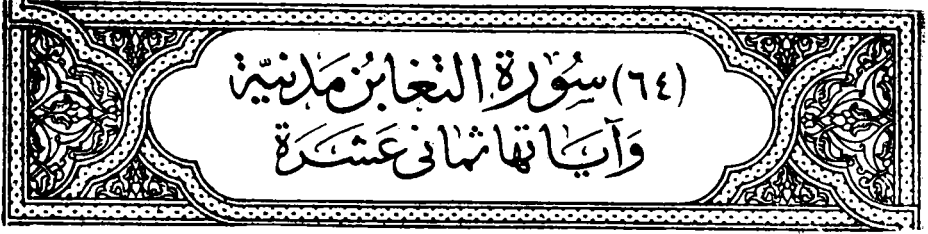 (٦٤) سُورَة التغابُن مَدَنيّة
وَآيَاتها ثمانى عَشَرَة